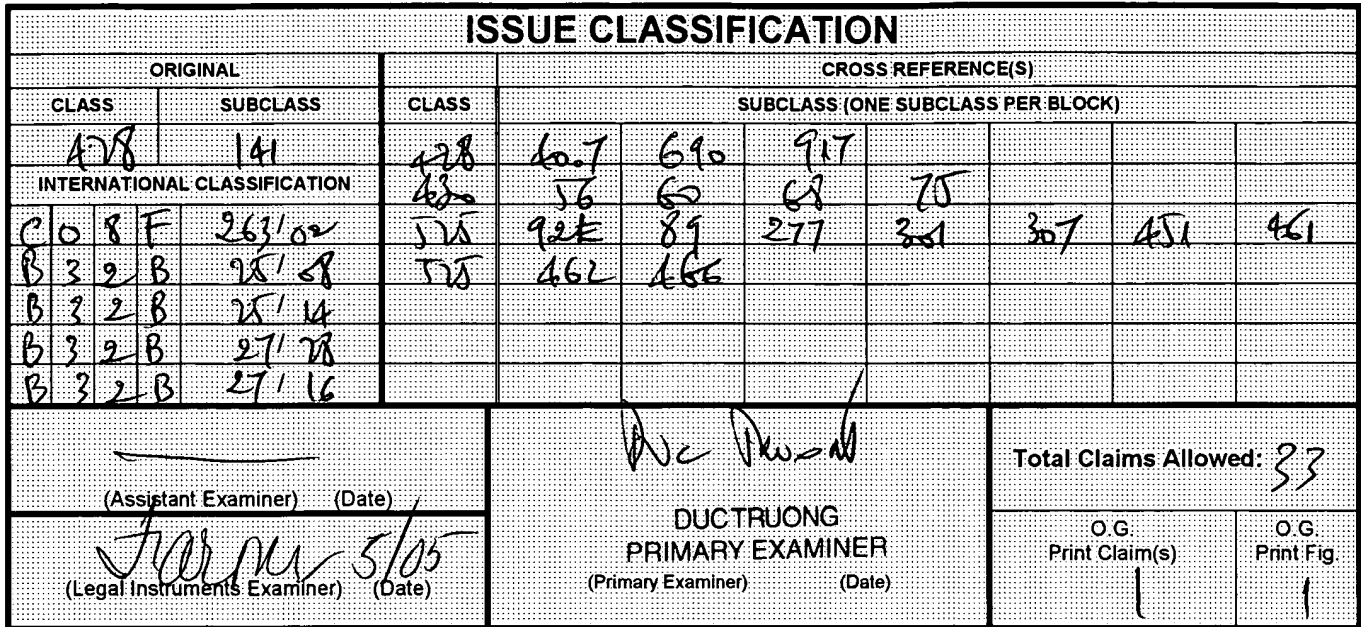 ISSUE CLASSIFICATION
ORIGINAL CROSS REFERENCE(S)
CLASS SUBCLASS CLASS SUBCLASS (ONE SUBCLASS PER BLOCK)
428 141 428 40.7 690 917
INTERNATIONAL CLASSIFICATION 430 56 60 68 75
C 0 8 F 263/02 525 92E 89 277 301 307 451 461
B 3 2 B 25/08 525 462 466
B 3 2 B 25/14
B 3 2 B 27/28
B 3 2 B 27/16
Duc Truong
Total Claims Allowed: 33
(Assistant Examiner) (Date)
DUC TRUONG
PRIMARY EXAMINER
(Primary Examiner) (Date)
5/05
(Legal Instruments Examiner) (Date)
O.G. O.G.
Print Claim(s) Print Fig.
1 1